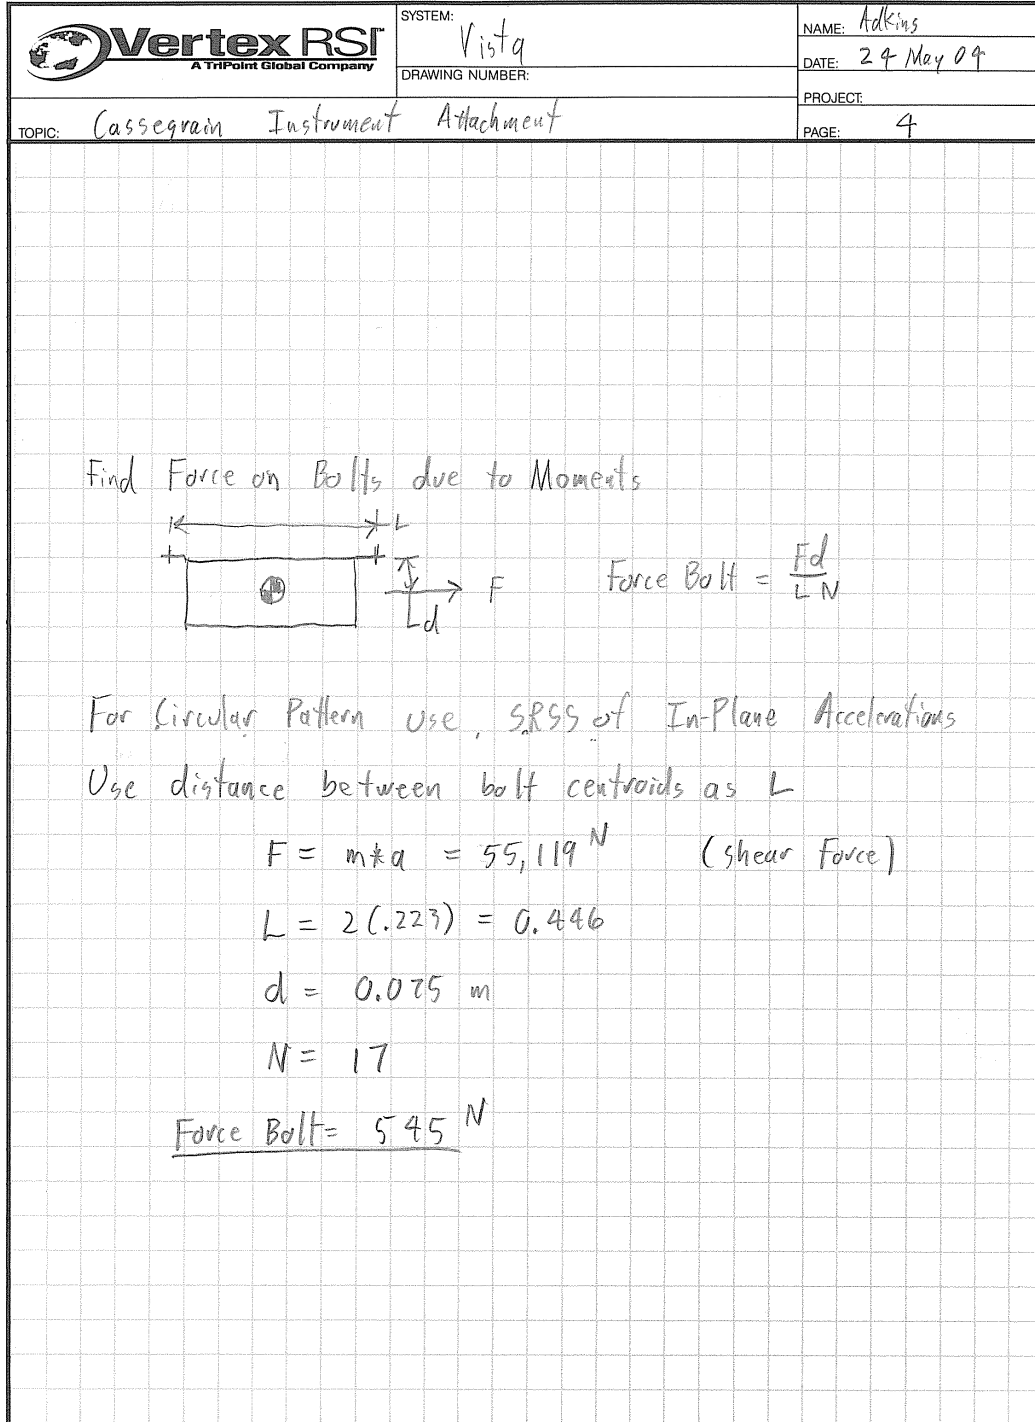 Vertex RSI
A TriPoint Global Company
SYSTEM: Vista
DRAWING NUMBER:
NAME: Adkins
DATE: 24 May 04
PROJECT:
TOPIC: Cassegrain Instrument Attachment
PAGE: 4
Find Force on Bolts due to Moments
L
F
d
Force Bolt = Fd / L N
For Circular Pattern use SRSS of In-Plane Accelerations
Use distance between bolt centroids as L
F = m*a = 55,119 N (Shear Force)
L = 2(.223) = 0.446
d = 0.075 m
N = 17
Force Bolt = 545 N